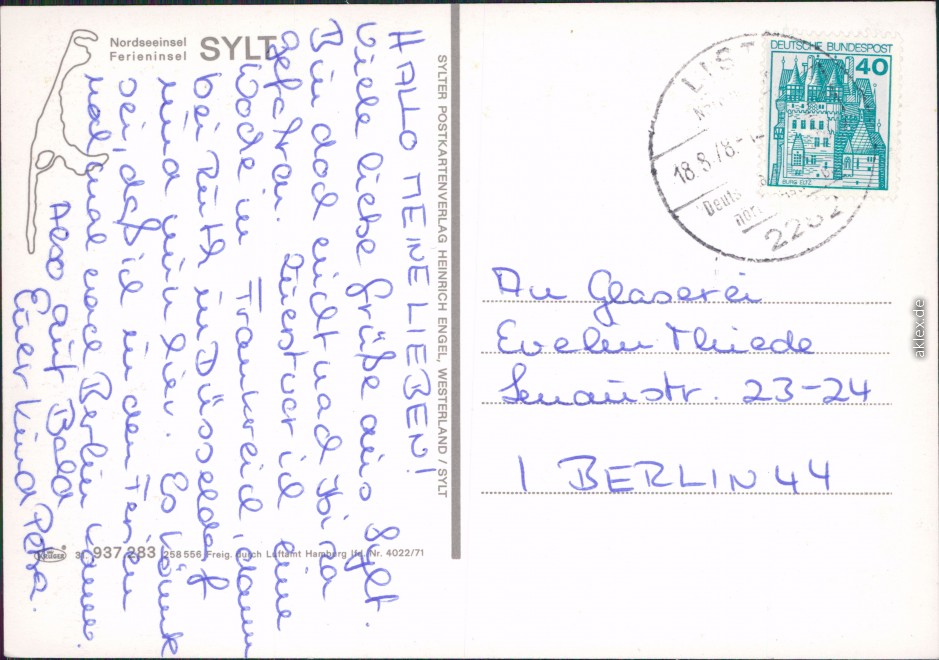 Nordseeinsel
Ferieninsel
SYLT
HALLO MEINE LIEBEN!
Viele liebe Grüße aus Sylt.
Bin doch nicht nach
gefahren. Zuerst war ich eine
Woche in Frankreich, dann
bei Ruth in Düsseldorf
und nun hier. Es könnte
sein, daß ich in den Ferien
noch mal nach Berlin komme.
Also auf Bald
Euer Kind Petra.
SYLTER POSTKARTENVERLAG HEINRICH ENGEL, WESTERLAND / SYLT
KRÜGER
937 283 258 556 Freig. durch Luftamt Hamburg lfd. Nr. 4022/71
DEUTSCHE BUNDESPOST
40
BURG ELTZ
LIST
18.8.78
2282
An Glaserei
Evelin Thiede
Lenaustr. 23-24
1 BERLIN 44
aklex.de